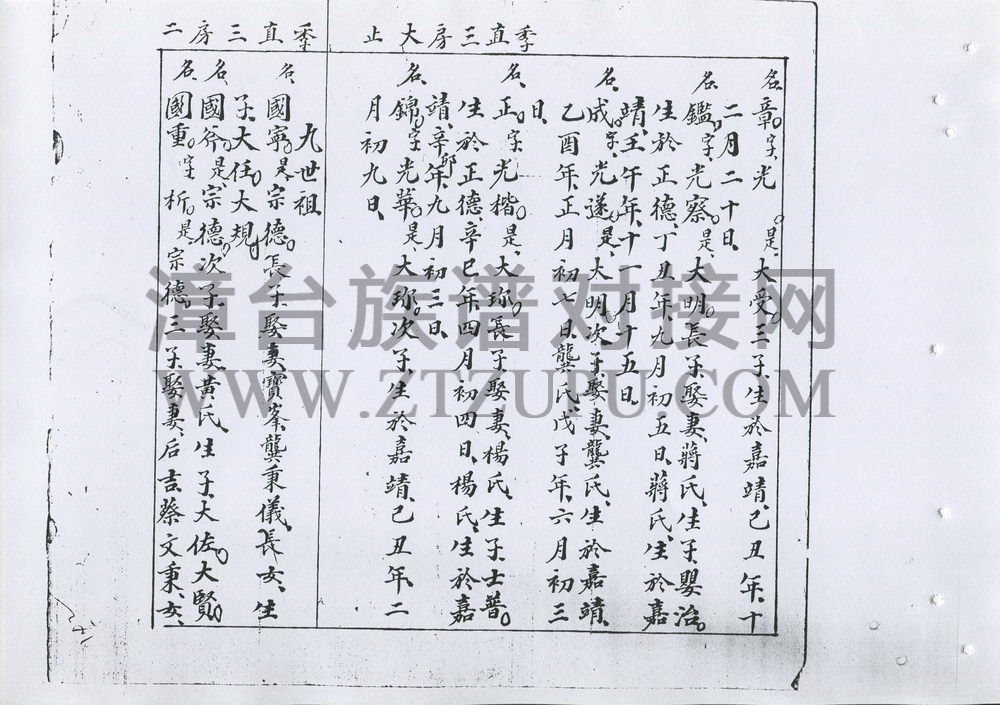 季直三房大止
名章。字光　。是、大受三子、生於嘉靖、己丑年、十
二月二十日、
名鑑。字、光察。是、大明長子、娶妻、蔣氏、生子、嬰治。
生於正德、丁丑年九月初五日、蔣氏、生於嘉
靖、壬午年、十一月十五日、
名成。字、光遂。是、大明次子、娶妻龔氏、生於嘉靖、
乙酉年、正月初七日、龔氏、戊子年、六月初三
日、
名正。字光楷。是、大珎長子、娶妻、楊氏、生子、士普。
生於正德、辛巳年四月初四日、楊氏、生於嘉
靖、辛卯年、九月初三日、
名錦。字光華。是、大珎次子、生於嘉靖、己丑年、二
月初九日、
季直三房二
九世祖
名國寧。是、宗德。長子、娶妻寶峯、龔秉儀、長女、生
子、大任。大規。
名國斧。是、宗德。次子、娶妻、黃氏、生子、大佐。大賢。
名國重。字析。是、宗德。三子、娶妻、后吉、蔡文秉、女、
漳台族谱对接网
WWW.ZTZUPU.COM